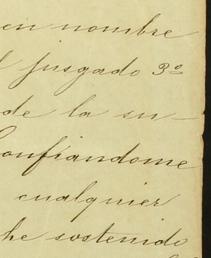 en nombre
l jusgado 3º
de la su-
onfiandome
cualquier
he sostenido